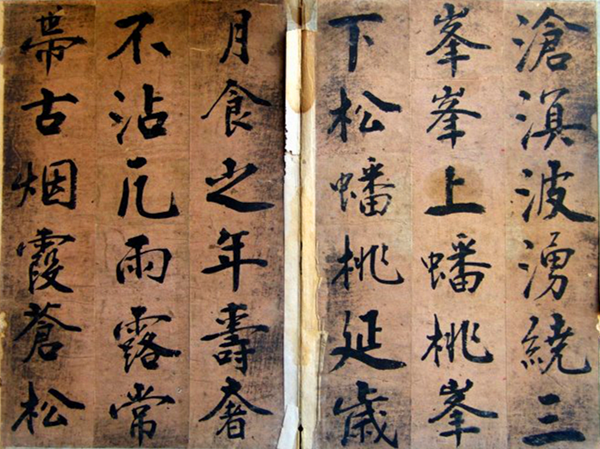 滄溟波湧繞三
峯峯上蟠桃峯
下松蟠桃延歲
月食之年壽奢
不沾凡雨露常
帶古烟霞蒼松